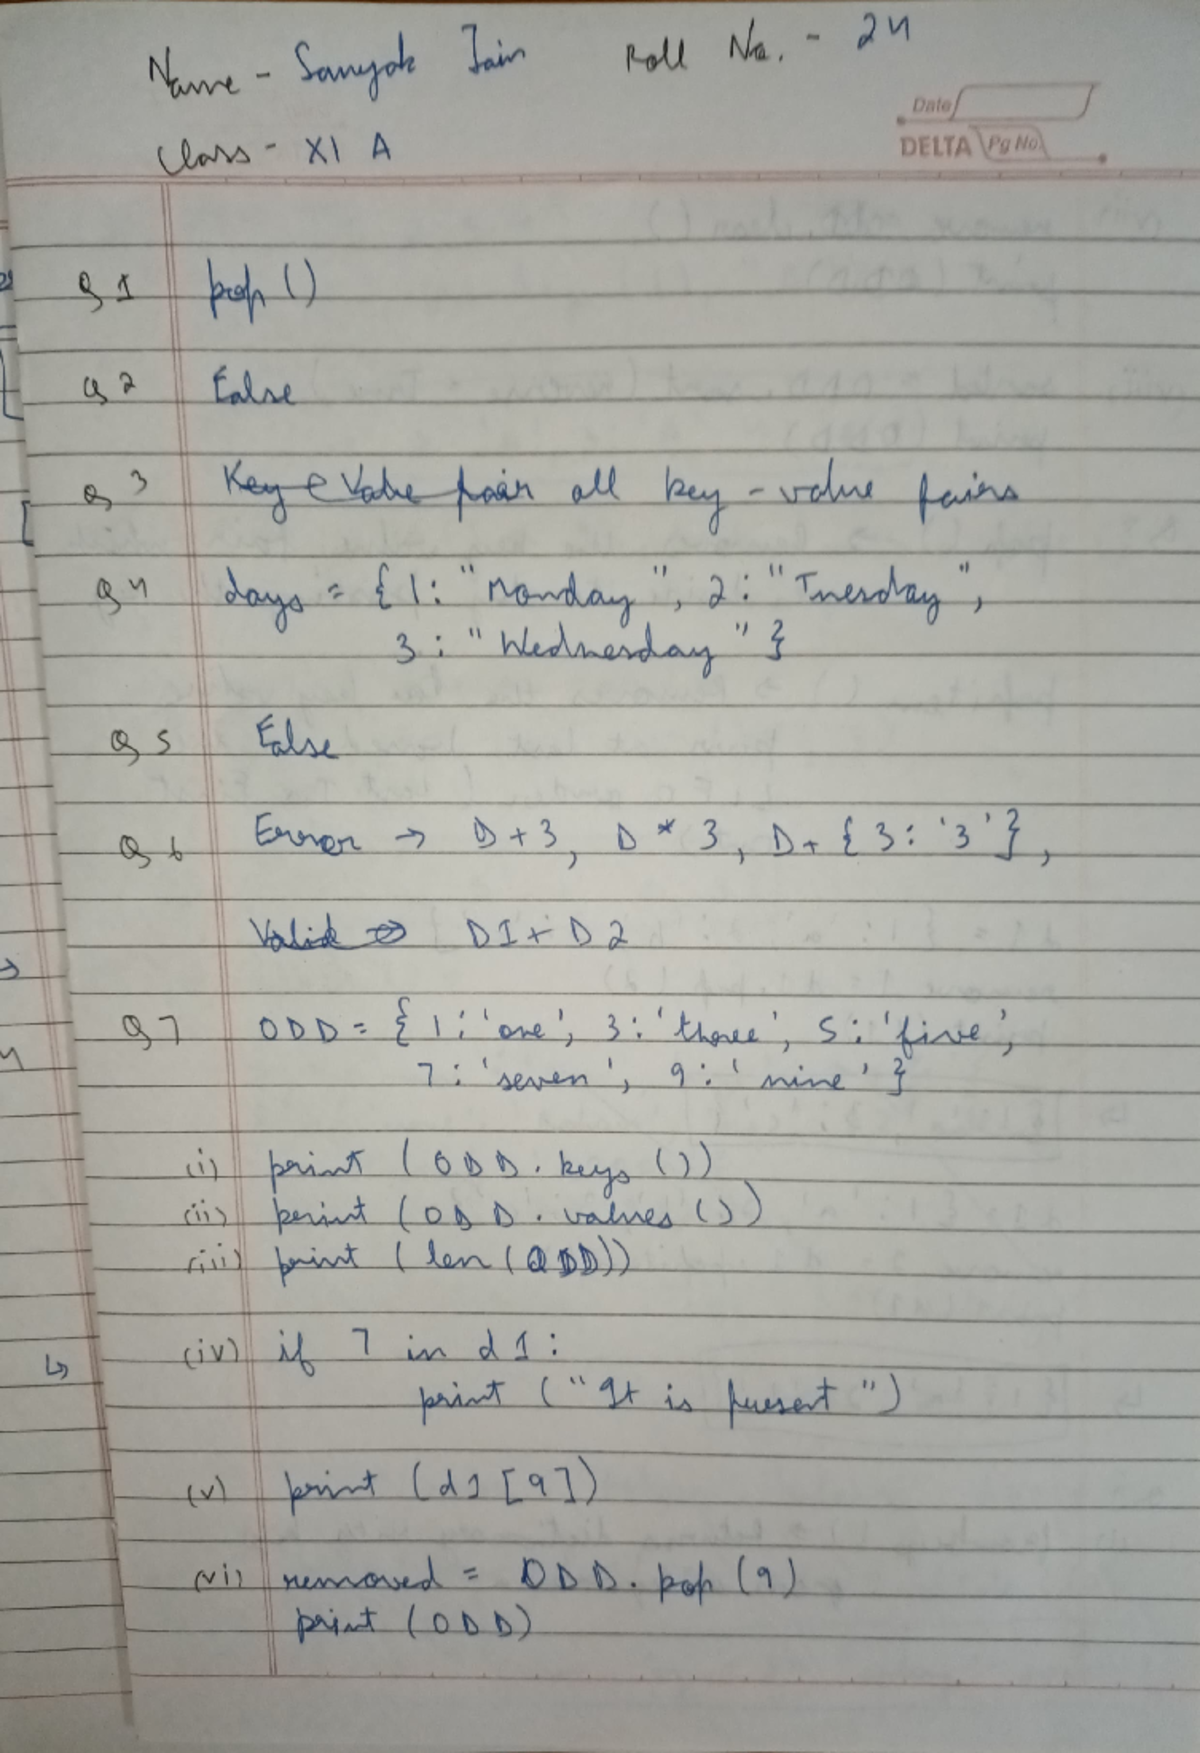 Name - Samyak Jain Roll No. - 24
Class - XI A
Date
DELTA Pg No
Q1 pop ()
Q2 False
Q3 Key e Value pair all key - value pairs
Q4 days = {1: "Monday", 2: "Tuesday",
3: "Wednesday"}
Q5 False
Q6 Error → D+3, D*3, D+{3: '3'},
Valid → D1+D2
Q7 ODD = {1: 'one', 3: 'three', 5: 'five',
7: 'seven', 9: 'nine'}
(i) print (ODD.keys ())
(ii) print (ODD.values ())
(iii) print (len(ODD))
(iv) if 7 in d1:
print ("It is present")
(v) print (d1[9])
(vi) removed = ODD.pop (9)
print (ODD)